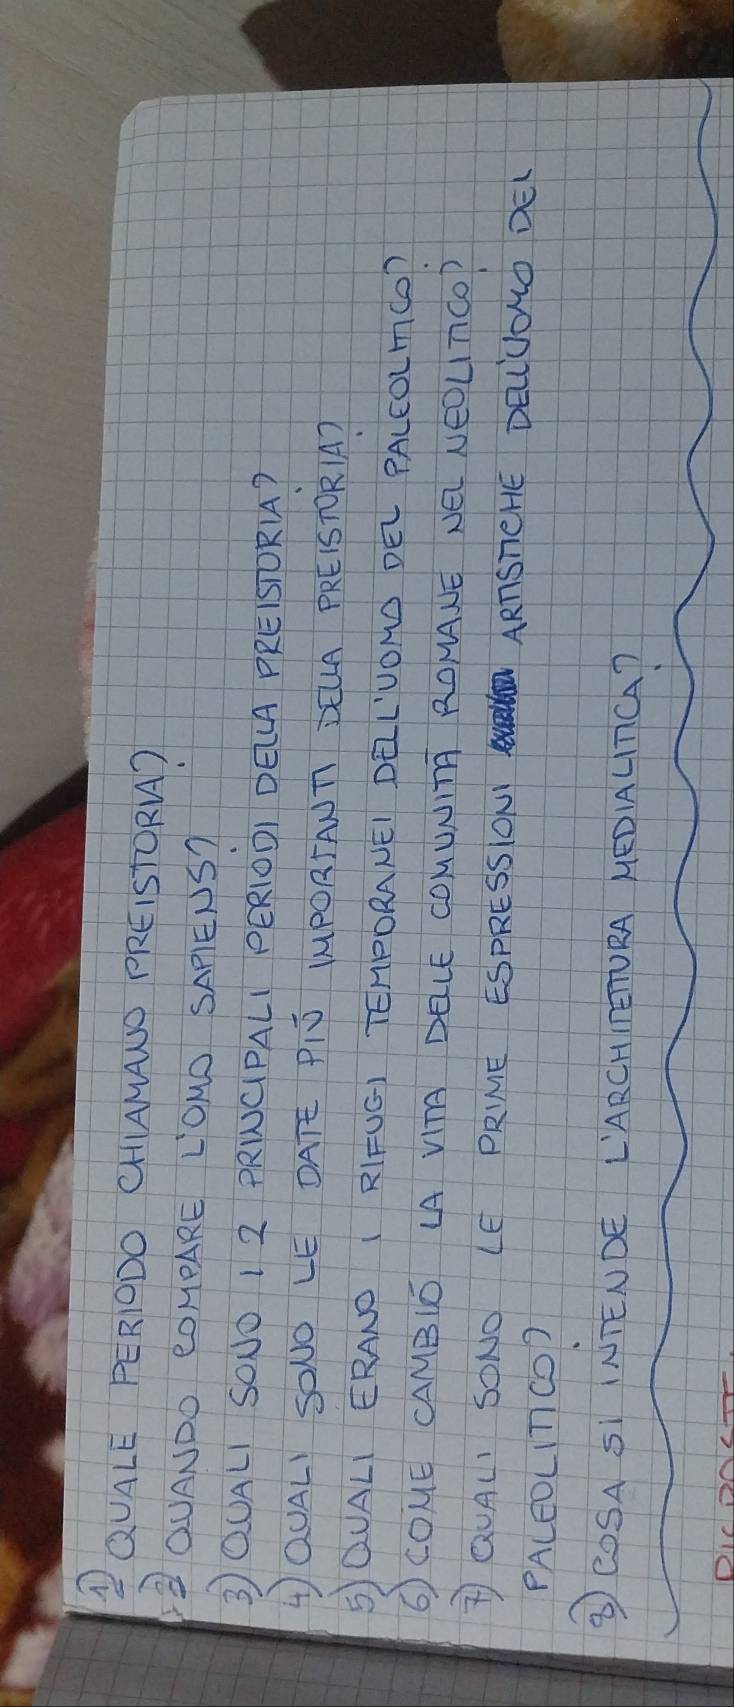 1) QUALE PERIODO CHIAMANO PREISTORIA?
2) QUANDO COMPARE L'OMO SAPIENS?
3) QUALI SONO I 2 PRINCIPALI PERIODI DELLA PREISTORIA?
4) QUALI SONO LE DATE PIÙ IMPORTANTI DELLA PREISTORIA?
5) QUALI ERANO I RIFUGI TEMPORANEI DELL'UOMO DEL PALEOLITICO?
6) COME CAMBIÒ LA VITA DELLE COMUNITÀ ROMANE NEL NEOLITICO?
7) QUALI SONO LE PRIME ESPRESSIONI ARTISTICHE DELL'UOMO DEL
PALEOLITICO?
8) COSA SI INTENDE L'ARCHITETTURA MEDIALITICA?